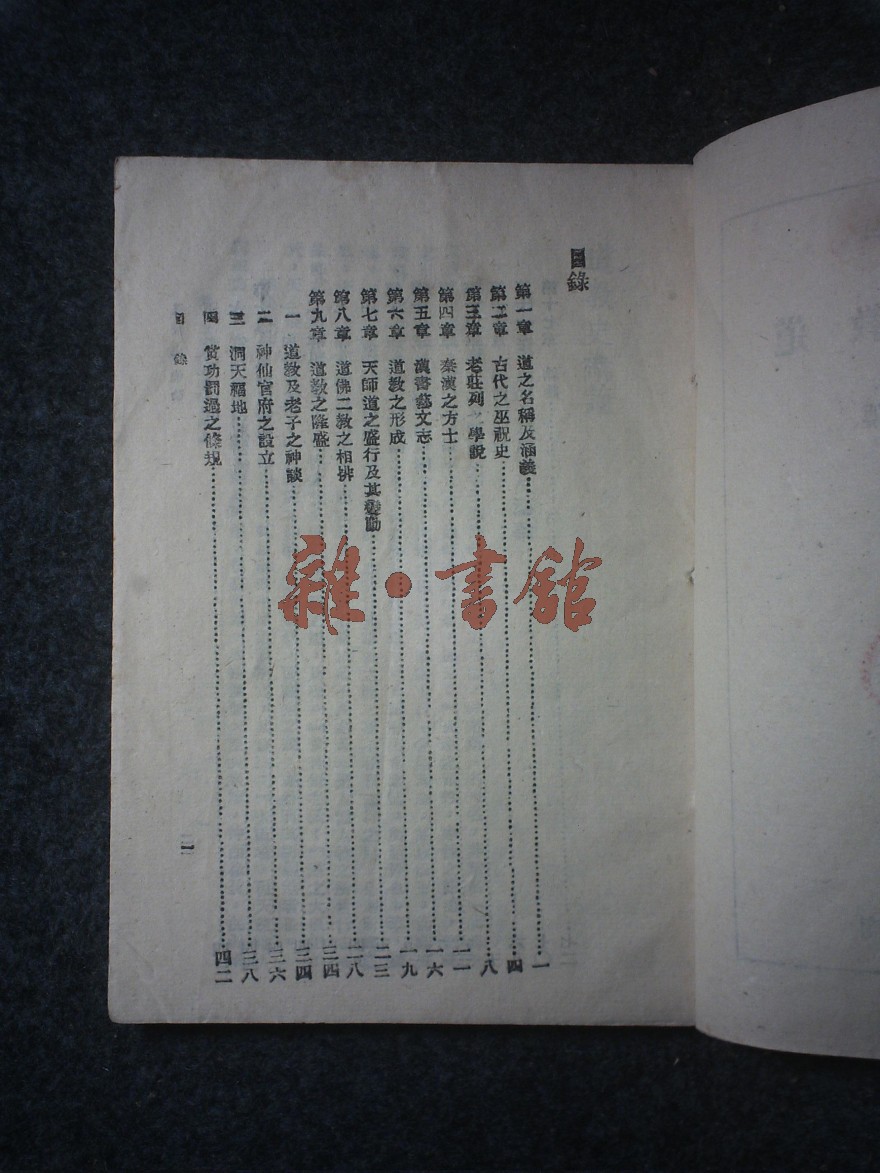 目錄
第一章 道之名稱及涵義 一
第二章 古代之巫祝史 四
第三章 老莊列之學說 八
第四章 秦漢之方士 一一
第五章 漢書藝文志 一六
第六章 道教之形成 一九
第七章 天師道之盛行及其變動 二三
第八章 道佛二教之相排 二八
第九章 道教之隆盛 三四
一 道教及老子之神談 三四
二 神仙官府之設立 三六
三 洞天福地 三八
四 賞功罰過之條規 四二
目錄
一
道
雜·書館